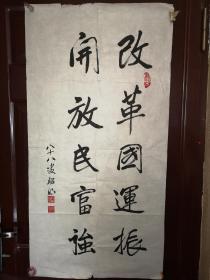 改革國運振
開放民富強
八十八歲